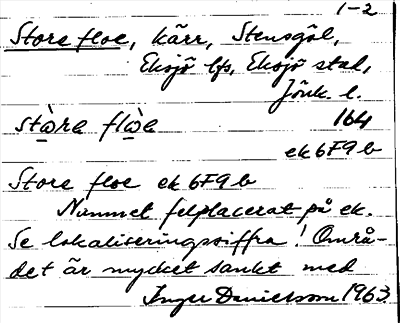 1-2
Store floe, kärr, Stensgöl,
Eksjö lfs, Eksjö stad,
Jönk. l.
stὼra flὼa 164
ek 6F9b
Store floe ek 6F9b
Namnet felplacerat på ek.
Se lokaliseringssiffra! Områ-
det är mycket sankt med
Inger Danielsson 1963